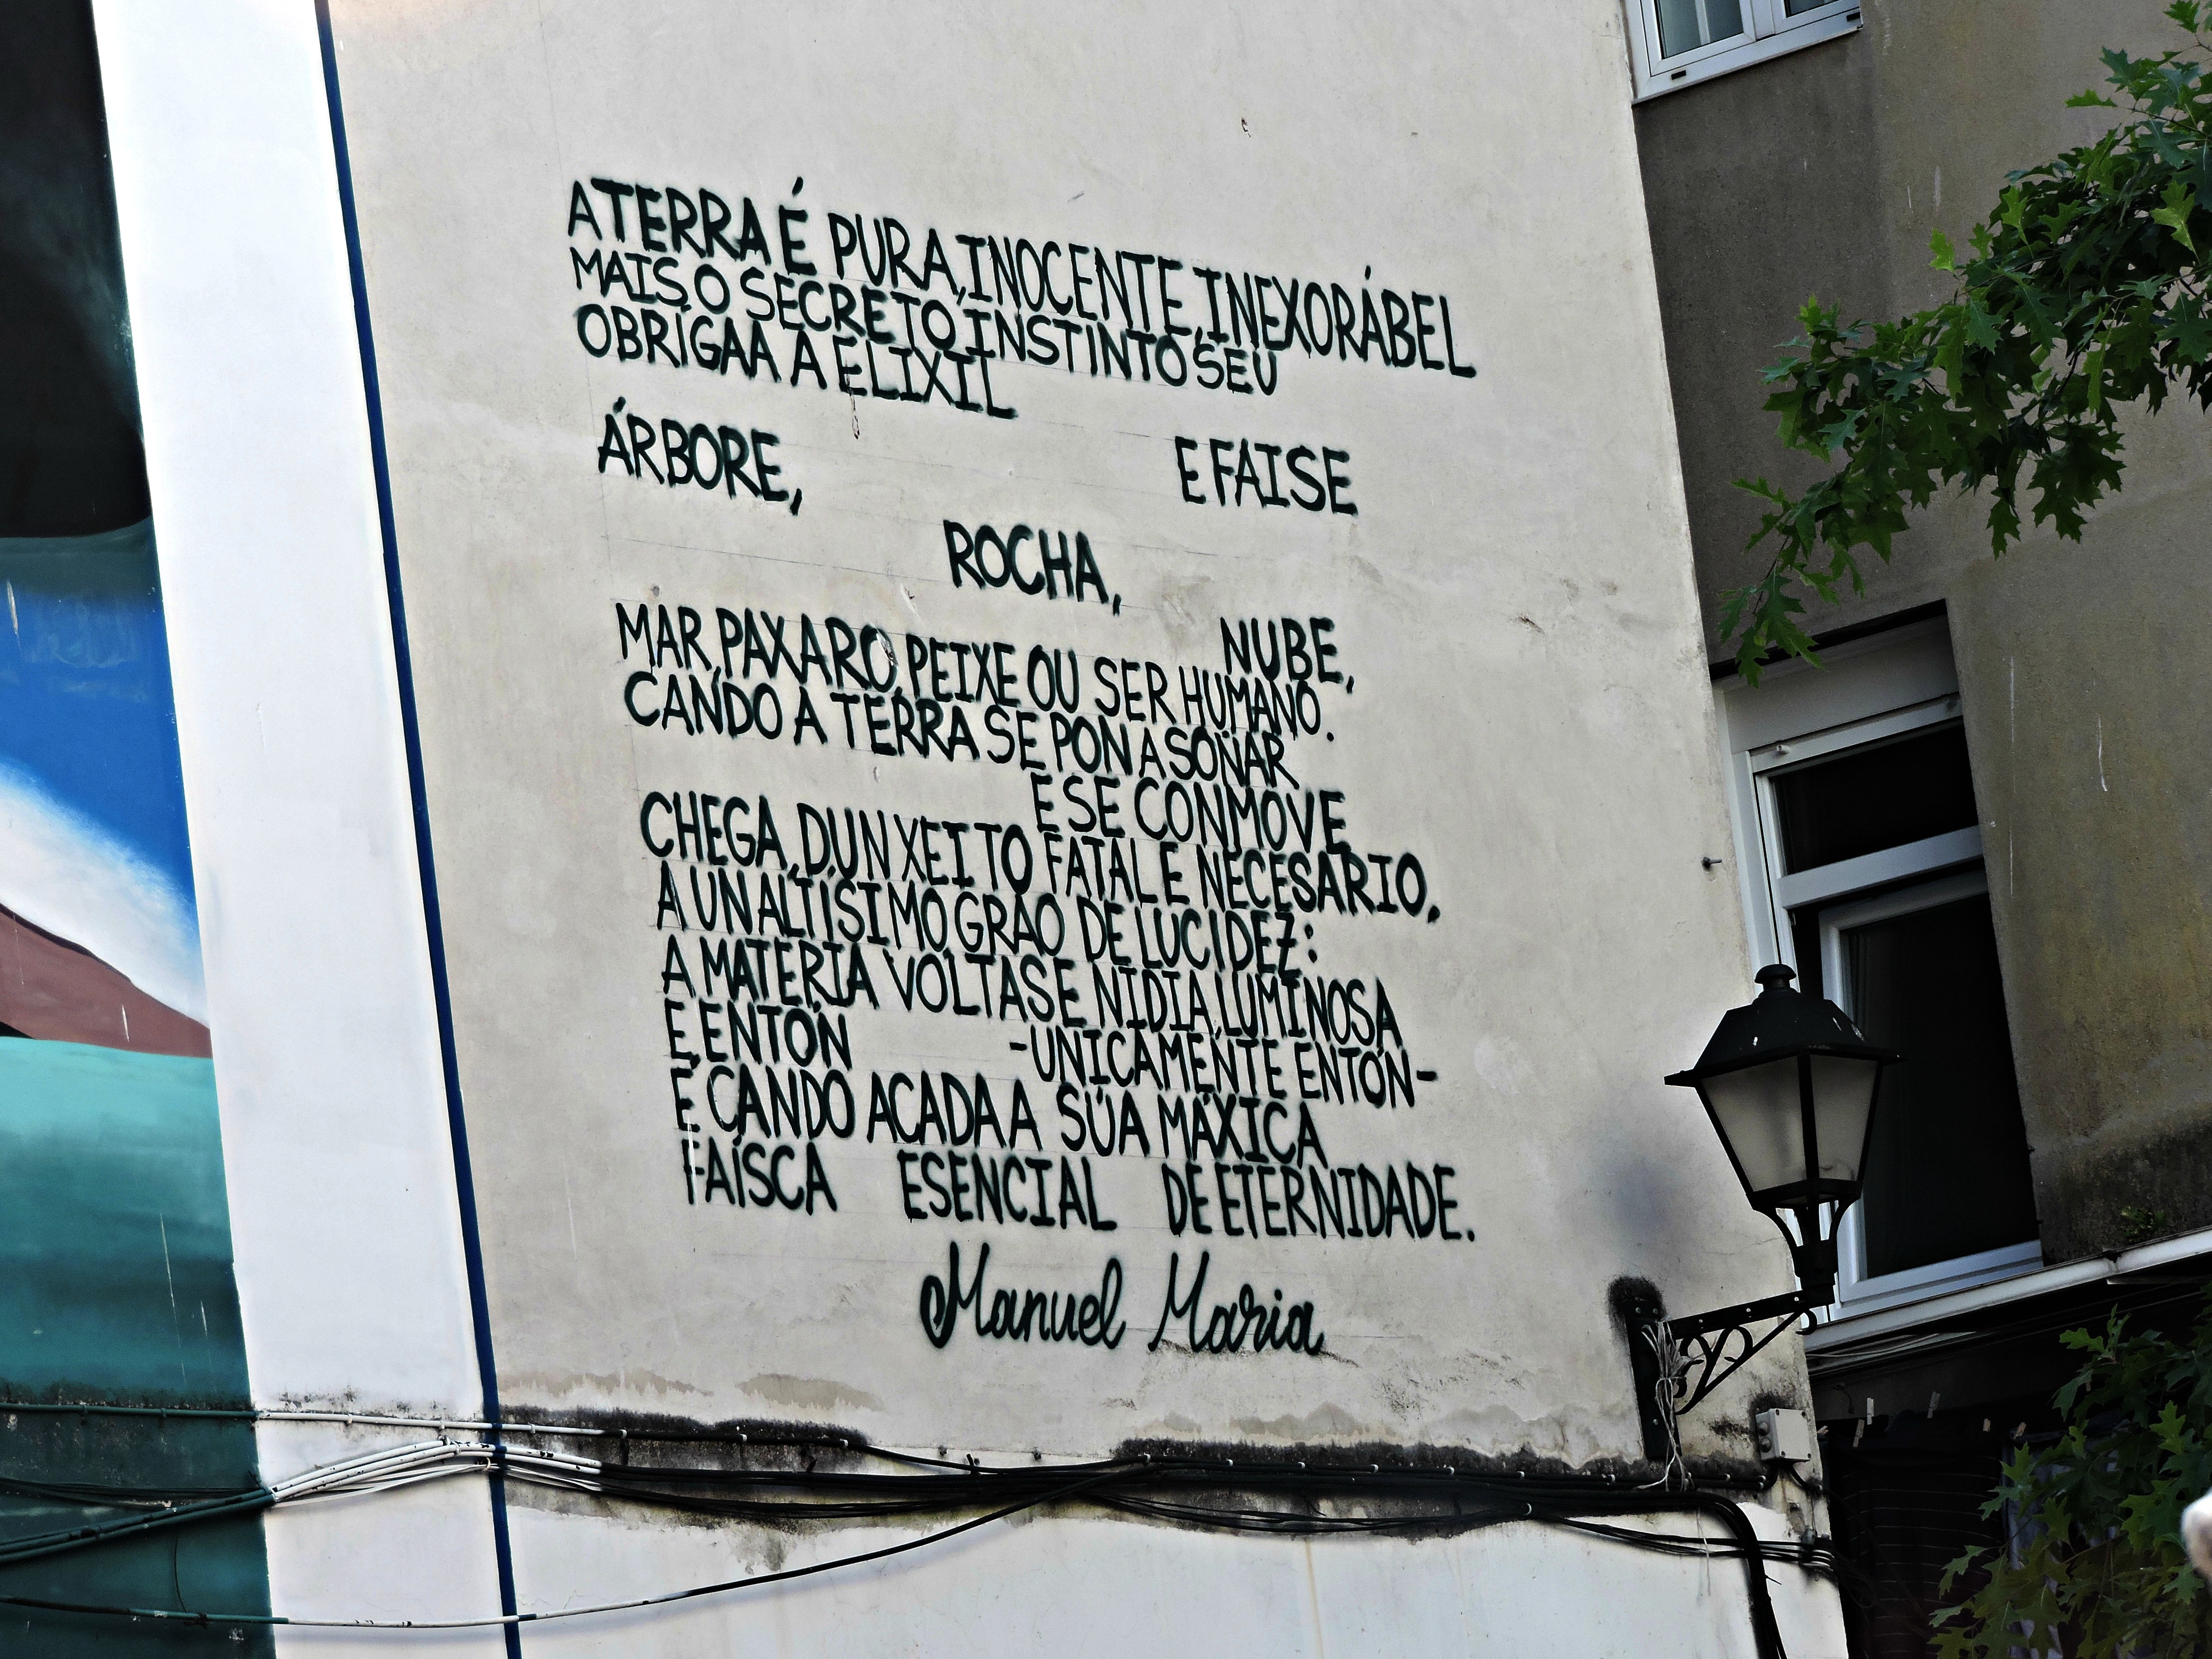 A TERRA É PURA, INOCENTE, INEXORÁBEL
MAIS, O SECRETO, INSTINTO SEU
OBRÍGAA A ELIXIL
ÁRBORE, E FAISE
ROCHA,
NUBE,
MAR, PAXARO, PEIXE OU SER HUMANO.
CANDO A TERRA SE PON A SOÑAR
E SE CONMOVE
CHEGA, DUN XEITO FATAL E NECESARIO,
A UN ALTÍSIMO GRAO DE LUCIDEZ:
A MATERIA VOLTASE NIDIA, LUMINOSA
E, ENTÓN -UNICAMENTE ENTÓN-
É CANDO ACADA A SÚA MÁXICA
FAÍSCA ESENCIAL DE ETERNIDADE.
Manuel Maria